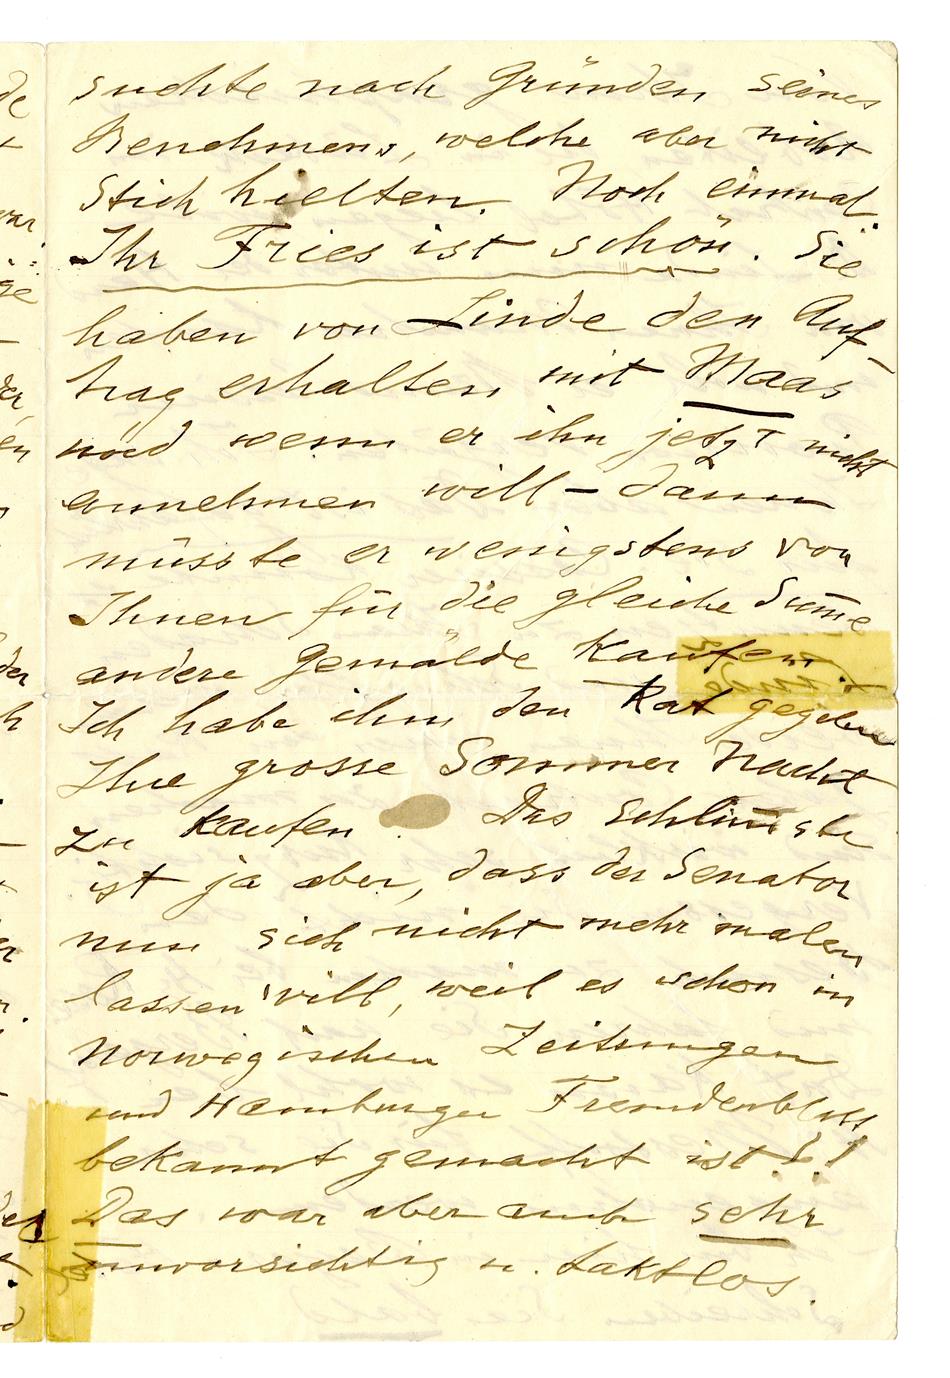 suchte nach Gründen seines
Benehmens, welche aber nicht
Stich hielten. Noch einmal.
Ihr Fries ist schön. Sie
haben von Linde den Auf-
trag erhalten mit Maas
und wenn er ihn jetzt nicht
annehmen will – dann
müsste er wenigstens von
Ihnen für die gleiche Sum̅e
andere Gemälde Kaufen.
Ich habe ihm den Rat gegeben
Ihre grosse Sommer Nacht
zu Kaufen. Das Schlim̅ste
ist ja aber, dass der Senator
nun sich nicht mehr malen
lassen will, weil es schon in
Norwegischen Zeitungen
und Hamburger Fremdenblatt
bekannt gemacht ist!!
Das war aber auch sehr
unvorsichtig u. taktlos.